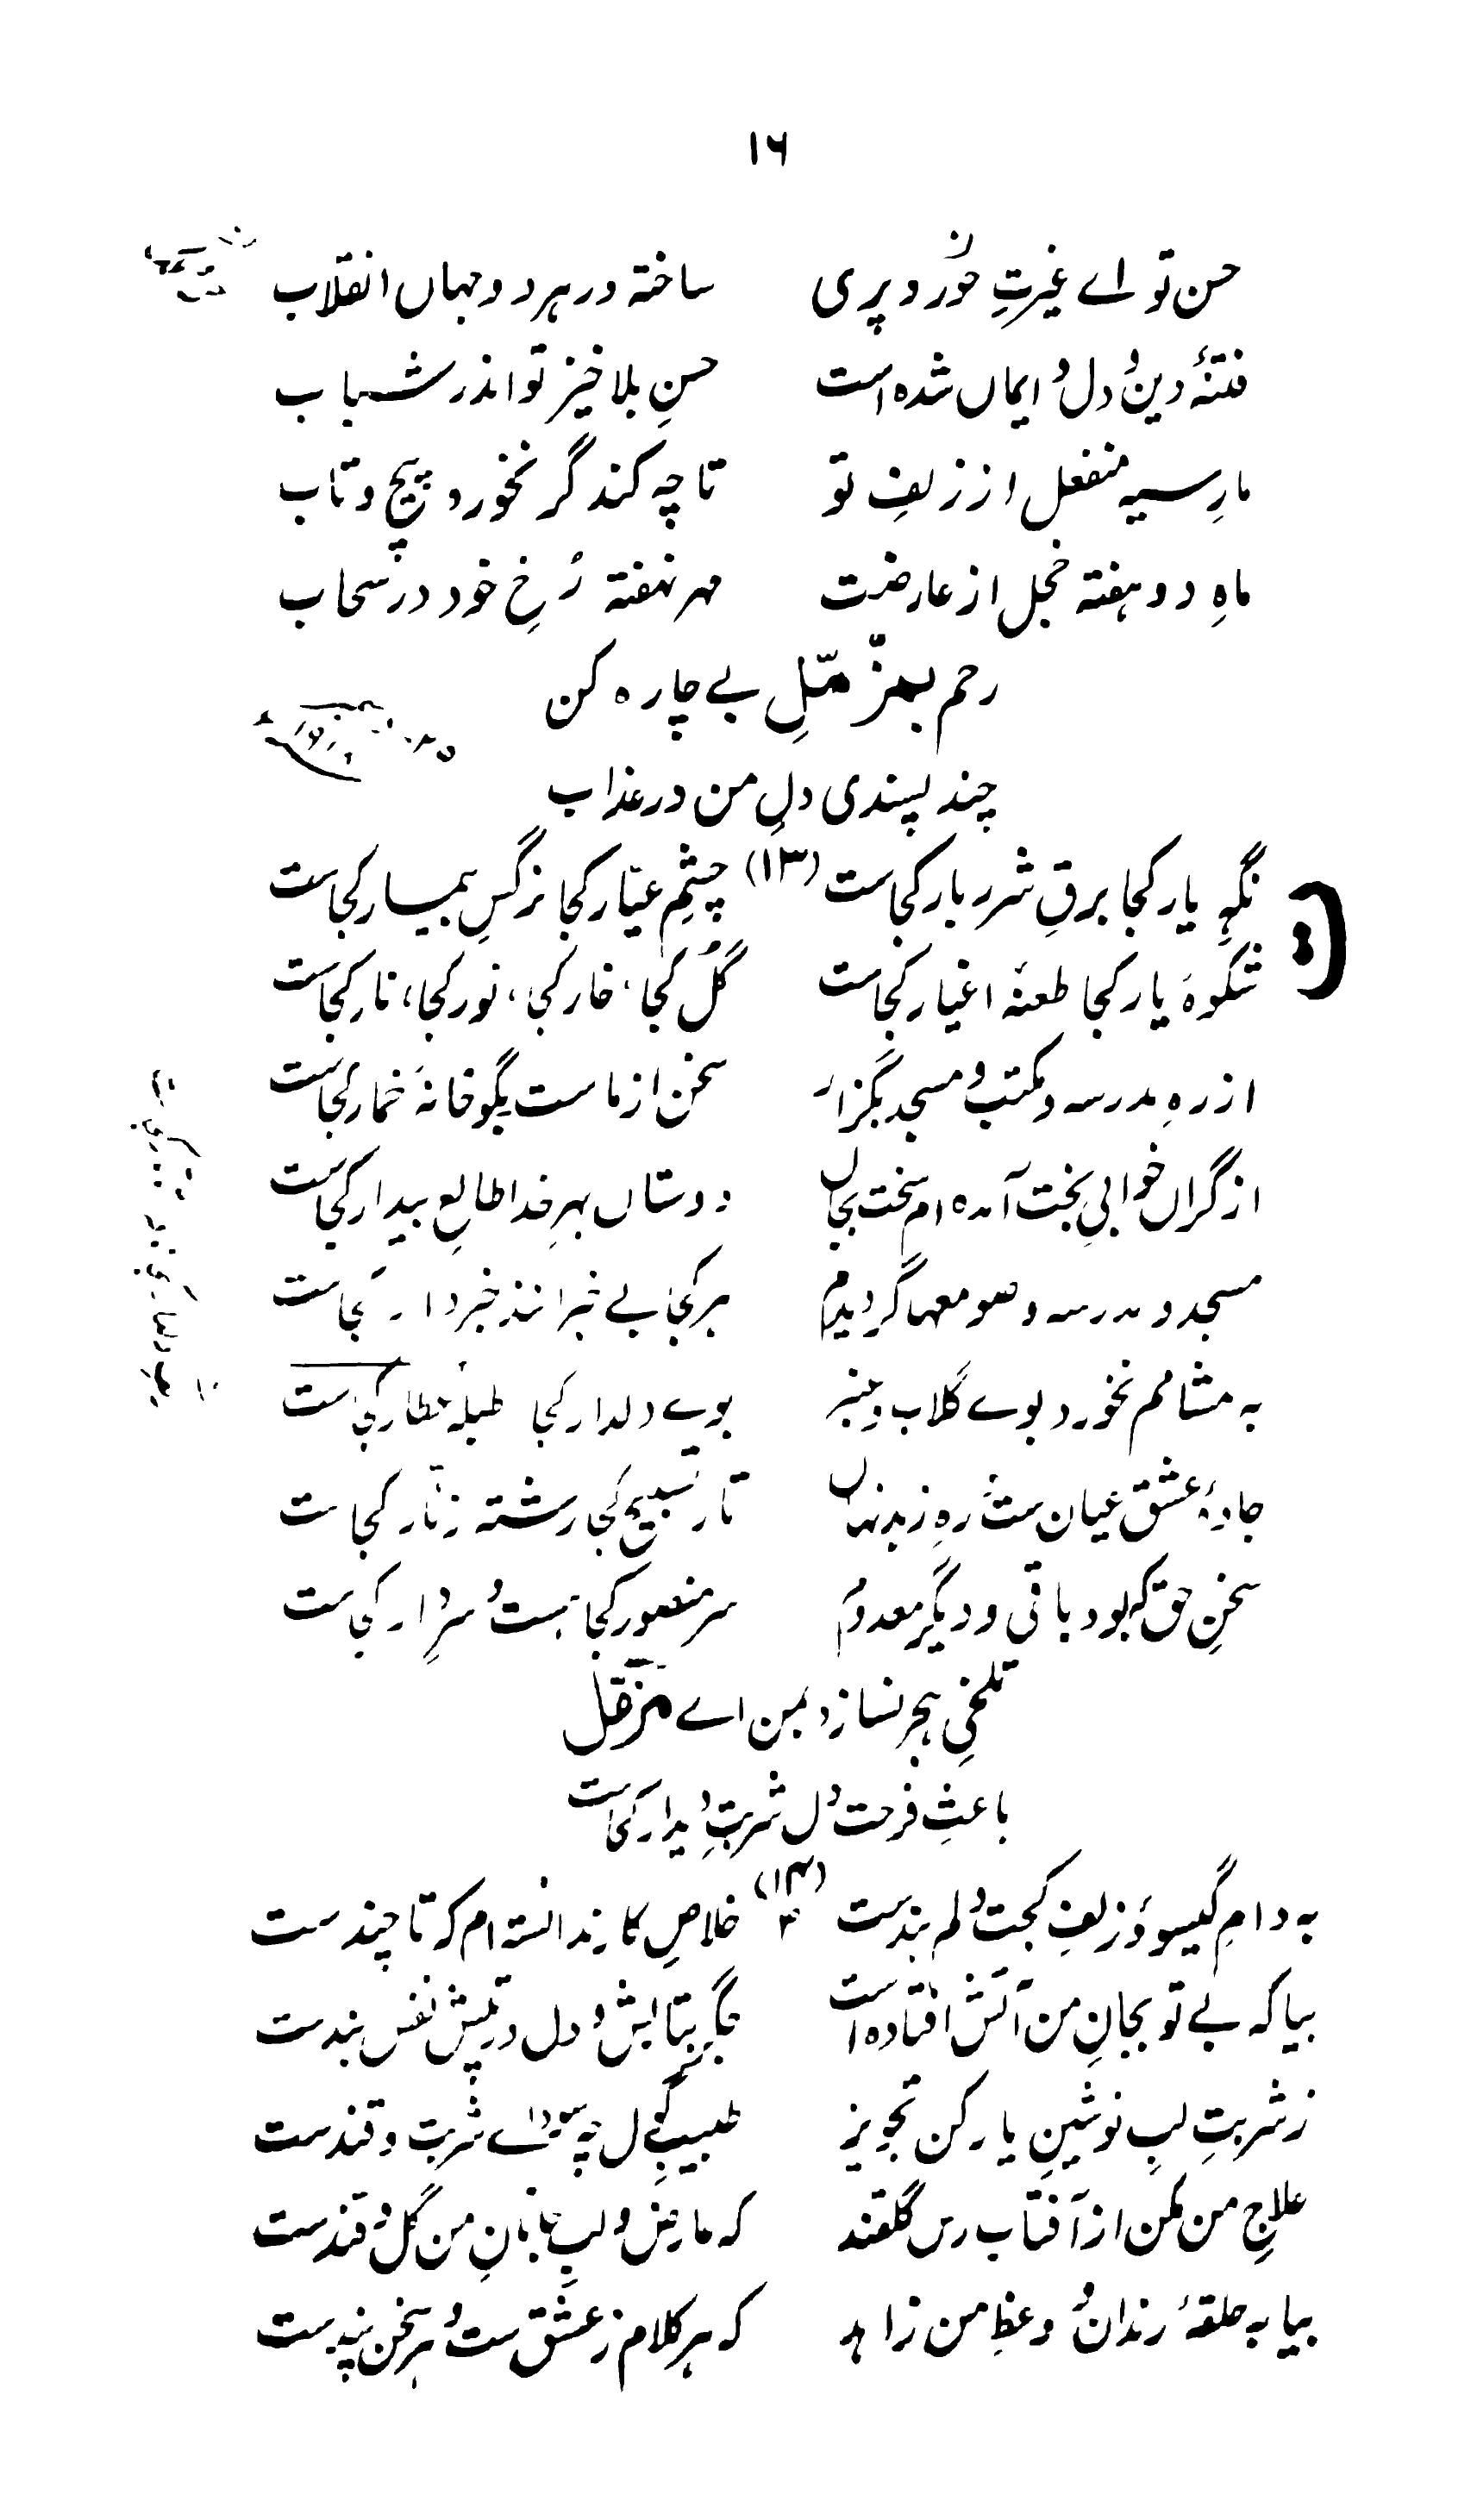 ۱۶
حسن تو اے غیرتِ حور و پری ساختہ در ہر دو جہاں انقلاب
فتنۂ دین و دل و ایماں شدہ است حسنِ بلا خیز تو اندر شباب
مارِ سیہ منفعل از زلفِ تو تا چہ کند گر نخورد پیچ و تاب
ماہِ دو ہفتہ خجل از عارضت مہر نہفتہ رُخِ خود در سحاب
رحم بمزّمّلِ بے چارہ کن
چند پسندی دلِ من در عذاب
نگہِ یار کجا برقِ شرر بار کجاست (۱۳) چشمِ عیّار کجا نرگسِ بیمار کجاست
شکوۂ یار کجا طعنۂ اغیار کجاست گل کجا، خار کجا، نور کجا، نار کجاست
از رہِ مدرسہ و مکتب و مسجد بگزار سخن از ماست بگو خانۂ خمار کجاست
از گراں خوابیِ بخت آمدہ ام سخت بجاں دوستاں بہرِ خدا طالعِ بیدار کجاست
مسجد و مدرسہ و صومعہا گردیدیم ہر کجا بے خبر انند خبردار کجاست
بہ مشامم نخورد بوے گلاب و عنبر بوے دلدار کجا طبلۂ عطار کجاست
جادۂ عشق عیان ست رہِ زہد نہاں تارِ تسبیح کجا رشتۂ زنّار کجاست
سخنِ حق کہ بود باقی و دیگر معدوم سرِ منصور کجا ہست و سرِ دار کجاست
تلخیِ ہجر نسازد بمن اے مزّمّل
باعثِ فرحتِ دل شربتِ دیدار کجاست
بہ دامِ گیسو و زلفِ کجت دلم بندست (۱۴) خلاصِ کار ندانستہ ام کہ تا چندست
بیا کہ بے تو بجانِ من آتش افتادہ است دل در تپش نفس بندست
ز شربتِ لبِ نوشینِ یار کن تجویز طبیب شربت و قندست
علاجِ من مکن از آفتاب رس گلقند کہ عارض و لبِ جانانِ من گل و قندست
بیا بہ حلقۂ رنداں و وعظِ من زاہد کہ ہر کلام ز عشق ست و ہر سخن پندست